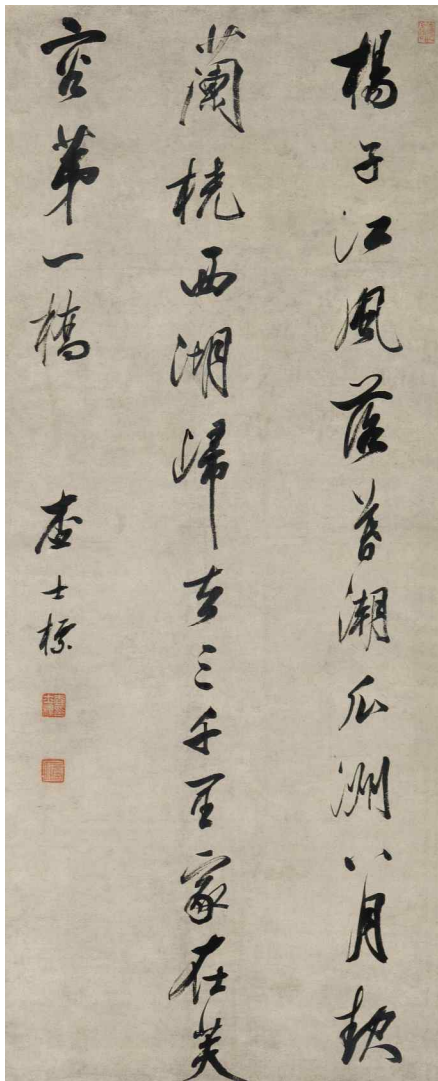 楊子江風落暮潮瓜洲八月
蘭橈西湖歸去三千里家在芙
容第一橋
查士標